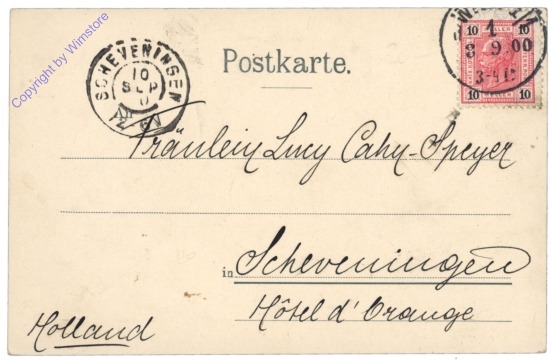 Copyright by Wimstore
SCHEVENINGEN
10
SEP
Postkarte.
10 10
8 9.00
10 10
Fräulein Lucy Cahn-Speyer
in Scheveningen
Hôtel d'Orange
Holland